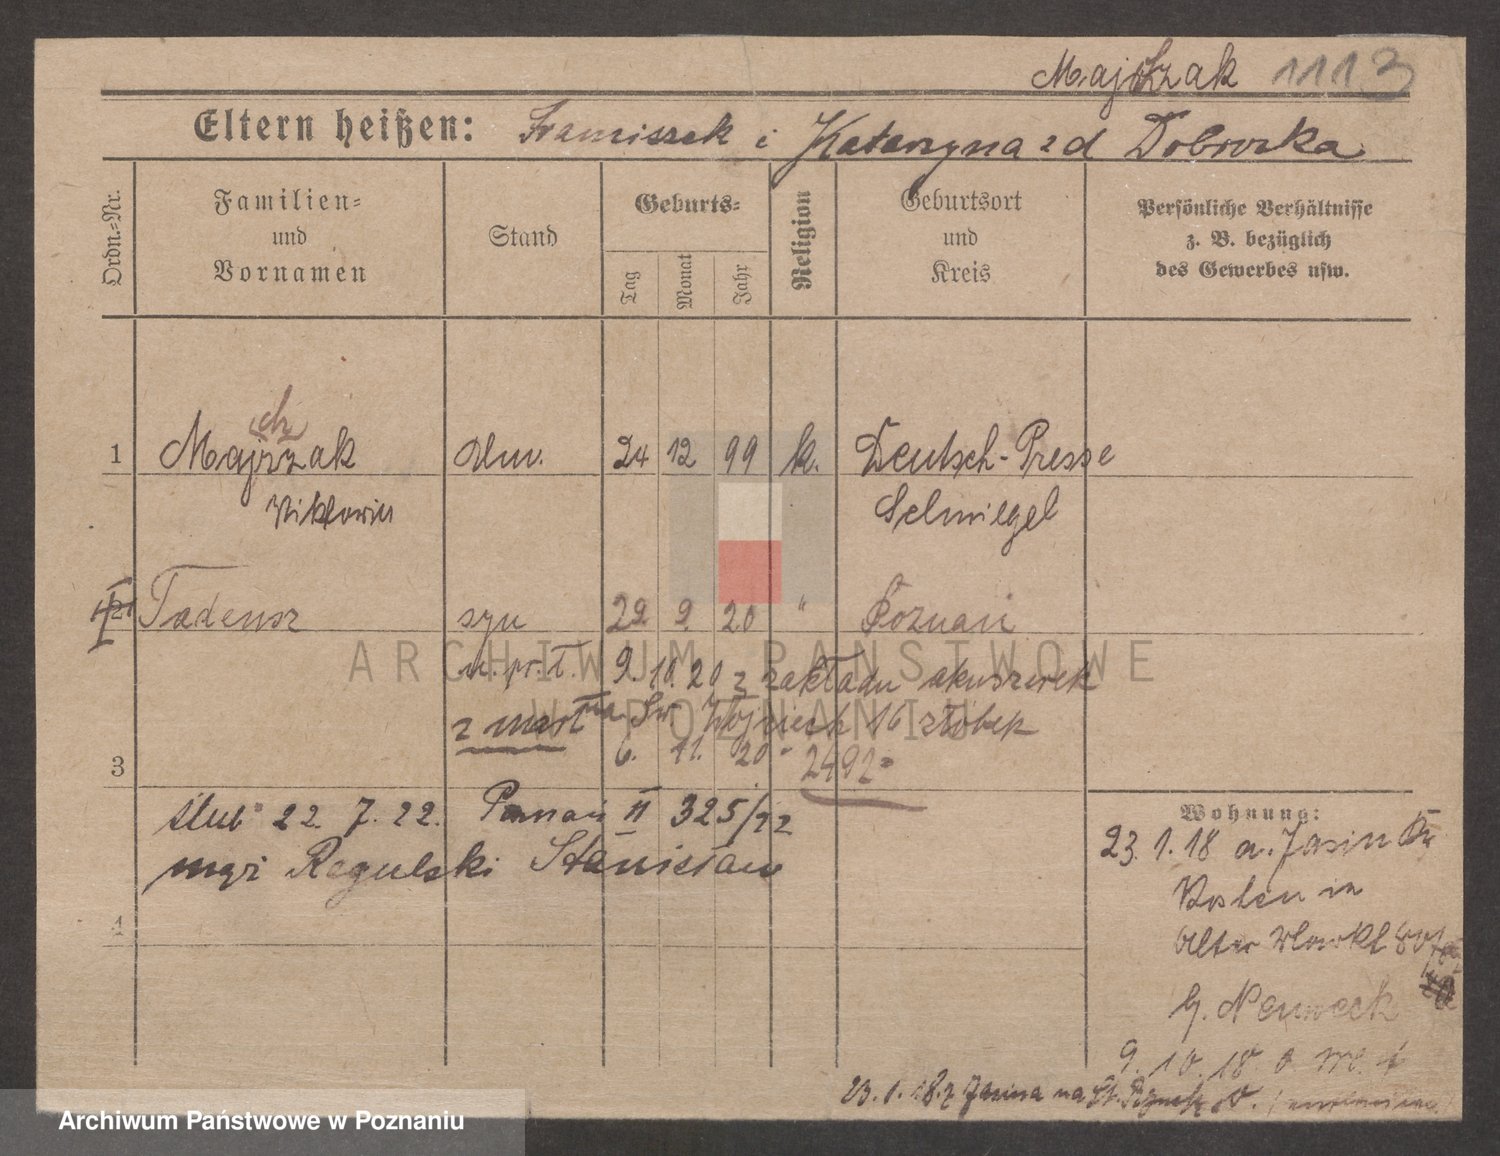 Majczak 1113
Eltern heißen: Franciszek i Katarzyna z d Dobrorska
Ordn.-Nr.
Familien-
und
Vornamen
Stand
Geburts-
Tag
Monat
Jahr
Religion
Geburtsort
und
Kreis
Persönliche Verhältnisse
z. B. bezüglich
des Gewerbes usw.
cz
1 Majrzak 24 12 99 k. Deutsch-Presse
Wiktorin Schmiegel
2 Tadeusz syn 29. 9. 20 " Poznań
9. 10. 20 z zakładu akuszerek
z na Św. Wojciech 16 złobek
3 6. 11. 20 2492
ślub 22. 7. 22. Poznań II 325/22
mąż Regulski Stanisław
4
Wohnung:
23. 1. 18 a. Jasin Kr
Kosten in
Alter 80
G. Nemeck
9. 10. 18
23. 1. 18. z Jasina na St. Rynek
ARCHIWUM PAŃSTWOWE
W POZNANIU
Archiwum Państwowe w Poznaniu